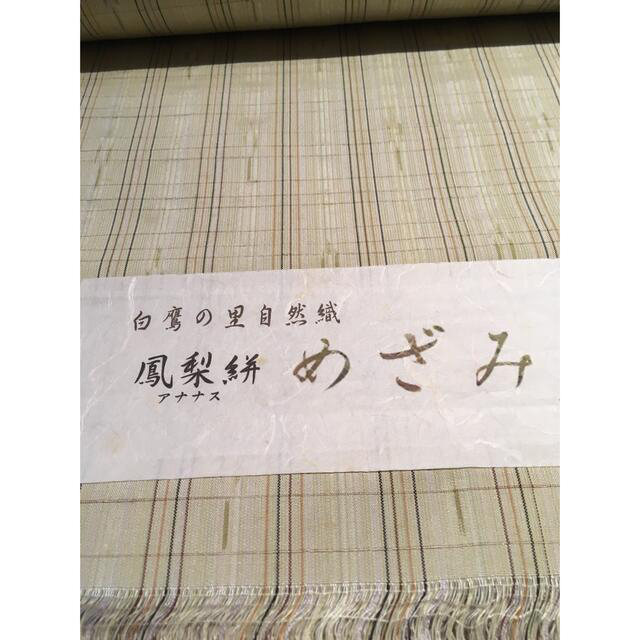 白鷹の里自然織
鳳梨絣 めざみ
アナナス